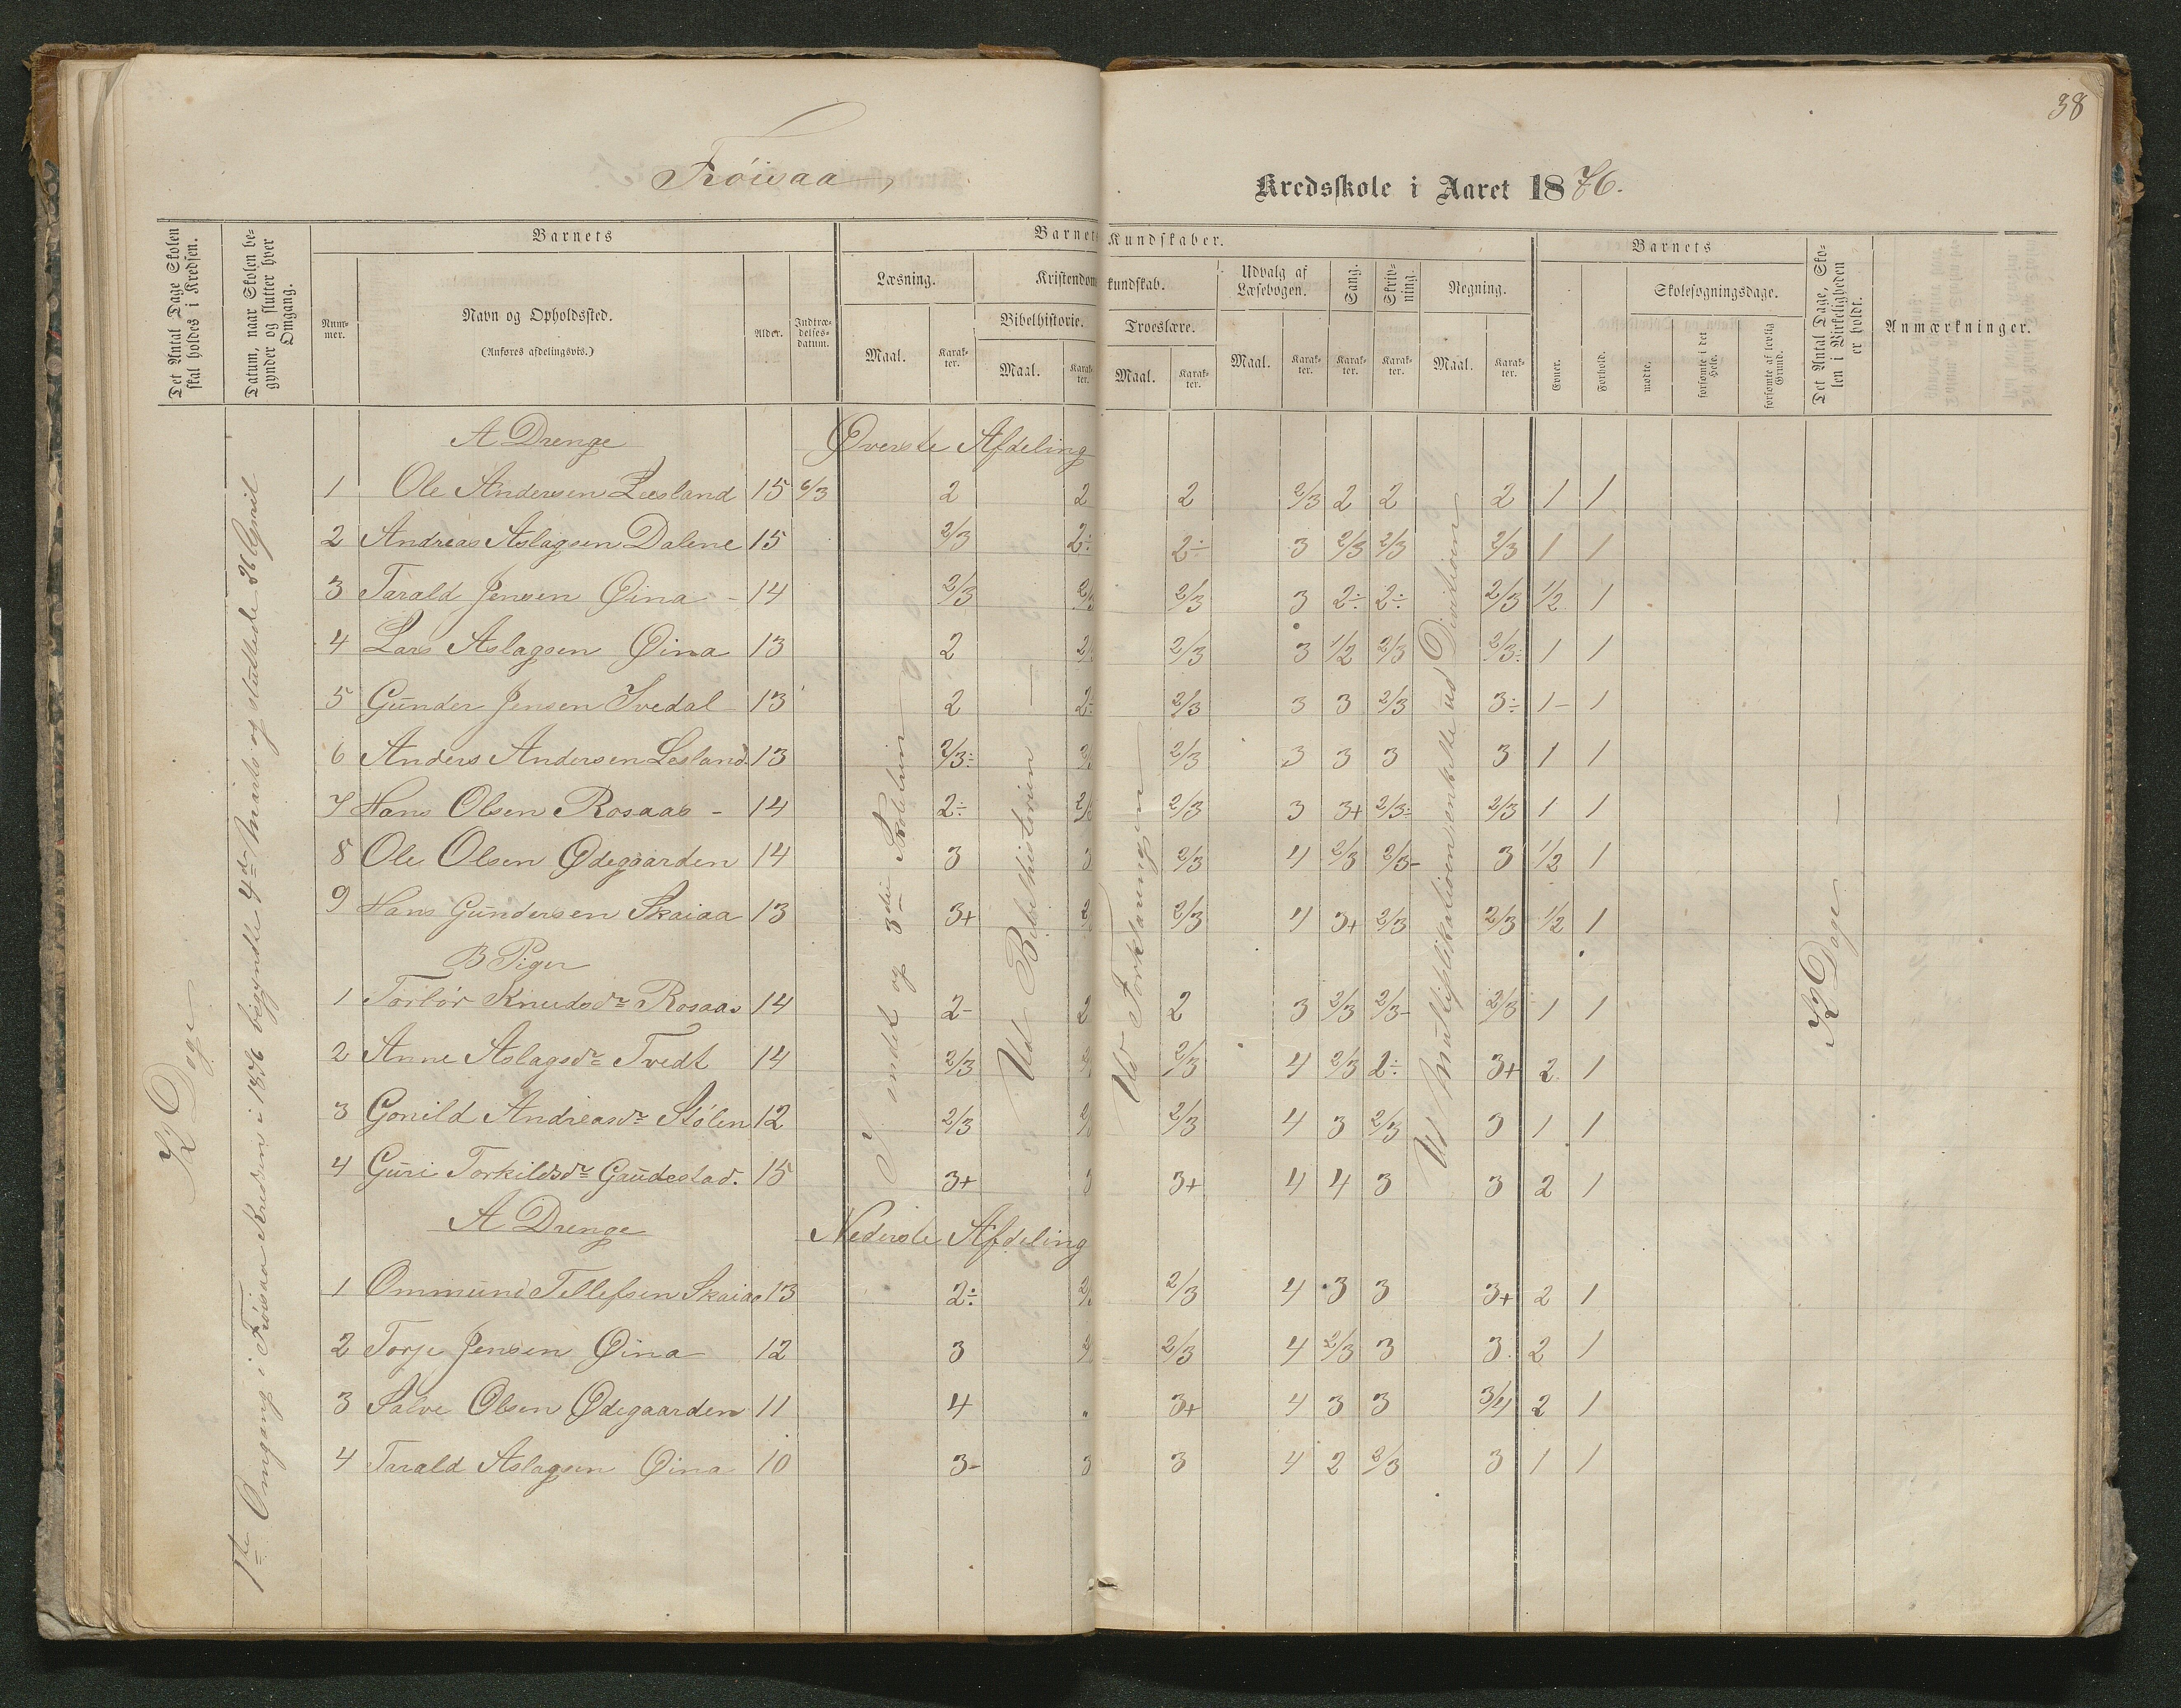 38
Frøisaa
Kredsskole i Aaret 1876.
Det Antal Dage Skolen skal holdes i Kredsen.
Datum, naar Skolen begynder og slutter hver Omgang.
Barnets
Barnets Kundskaber.
Barnets
Det Antal Dage, Skolen i Virkeligheden er holdt.
Anmærkninger.
Nummer.
Navn og Opholdssted.
(Anføres afdelingsvis.)
Alder.
Indtrædelses-datum.
Læsning.
Kristendomskundskab.
Udvalg af Læsebogen.
Sang.
Skrivning.
Regning.
Evner.
Forhold.
Skolesøgningsdage.
Bibelhistorie.
Troeslære.
Maal.
Karakter.
Maal.
Karakter.
Maal.
Karakter.
Maal.
Karakter.
Karakter.
Karakter.
Maal.
Karakter.
mødte.
forsømte i det Hele.
forsømte af lovlig Grund.
A Drenge Øverste Afdeling
1 Ole Andersen Leesland 15 6/3 2 2 2 2/3 2 2 2 1 1
2 Andreas Aslagsen Dalene 15 2/3 2÷ 2÷ 3 2/3 2/3 2/3 1 1
3 Tarald Jensen Øina - 14 2/3 2/3 2/3 3 2÷ 2÷ 2/3 1/2 1
4 Lars Aslagsen Øina 13 2 2/3 2/3 3 1/2 2/3 2/3÷ 1 1
5 Gunder Jensen Ivedal 13 2 2÷ 2/3 3 3 2/3 3÷ 1- 1
6 Anders Andersen Lesland 13 2/3÷ 2/3 2/3 3 3 3 3 1 1
7 Hans Olsen Rosaas - 14 2÷ 2/3 2/3 3 3+ 2/3÷ 2/3 1 1
8 Ole Olsen Ødegaarden 14 3 3 2/3 4 2/3 2/3- 3 1/2 1
9 Hans Gundersen Skaiaa 13 3+ 2/3 4 3+ 2/3 2/3 1/2 1
B Piger
1 Torbør Knudsdr Rosaas 14 2- 2 2 3 2/3 2/3- 2/3 1 1
2 Anne Aslagsdr Tvedt 14 2/3 2/3 4 2/3 2÷ 3+ 2 1
3 Gonild Andreasdr Stølen 12 2/3 2/3 2/3 4 3 2/3 3 1 1
4 Guri Torkildsdr Gaudestad. 15 3+ 3 3+ 4 4 3 3 2 1
A Drenge Nederste Afdeling
1 Ommund Tellefsen Skaiaa 13 2÷ 2/3 2/3 4 3 3 3+ 2 1
2 Torje Jensen Øina 12 3 2/3 4 2/3 3 3 2 1
3 Salve Olsen Ødegaarden 11 4 3+ 4 3 3 3/4 2 1
4 Tarald Aslagsen Øina 10 3- 3 3 4 2 2/3 3 1 1
K Dage
1ste Omgang i Frøisaa Kredsen i 1876 begyndte 4de Marts og sluttede 26 April
indet og 3die Skoletrin
Ud Bibelhistorien
Ud Forklaringen
Ud Multiplikationen enkelte ud Divitionen
K Dage